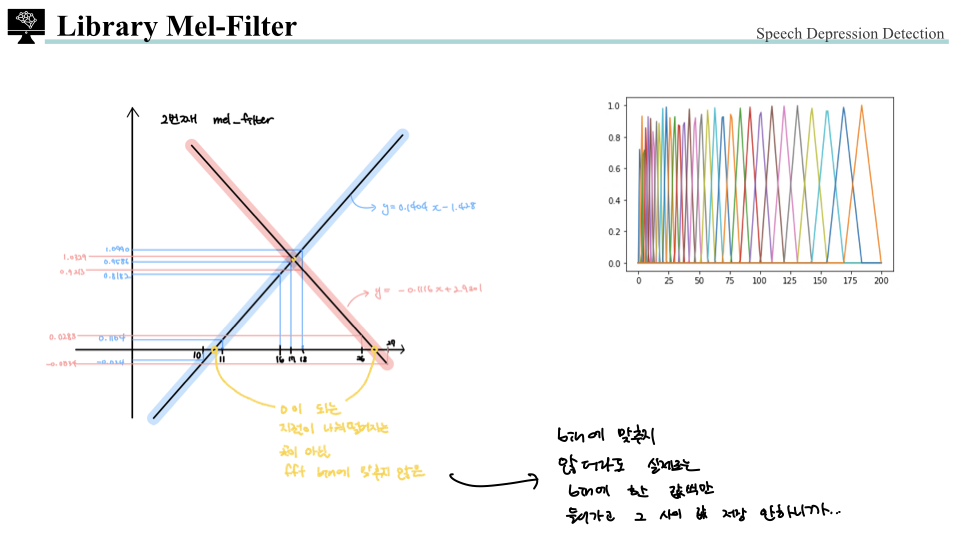 Library Mel-Filter
Speech Depression Detection
2번째 mel_filter
y=0.1404x-1.428
y= -0.1116x+2.9001
1.0990
1.0829
0.9586
0.9713
0.8182
0.0283
0.1164
-0.024
10
11
16
17
18
26
29
0이 되는
지점이 나눠떨어지는
곳이 아닌
fft bin에 맞추지 않은
bin에 맞추지
않더라도 실제로는
bin에 한 값씩만
들어가고 그 사이 값 저장 안하니까...
1.0
0.8
0.6
0.4
0.2
0.0
0 25 50 75 100 125 150 175 200